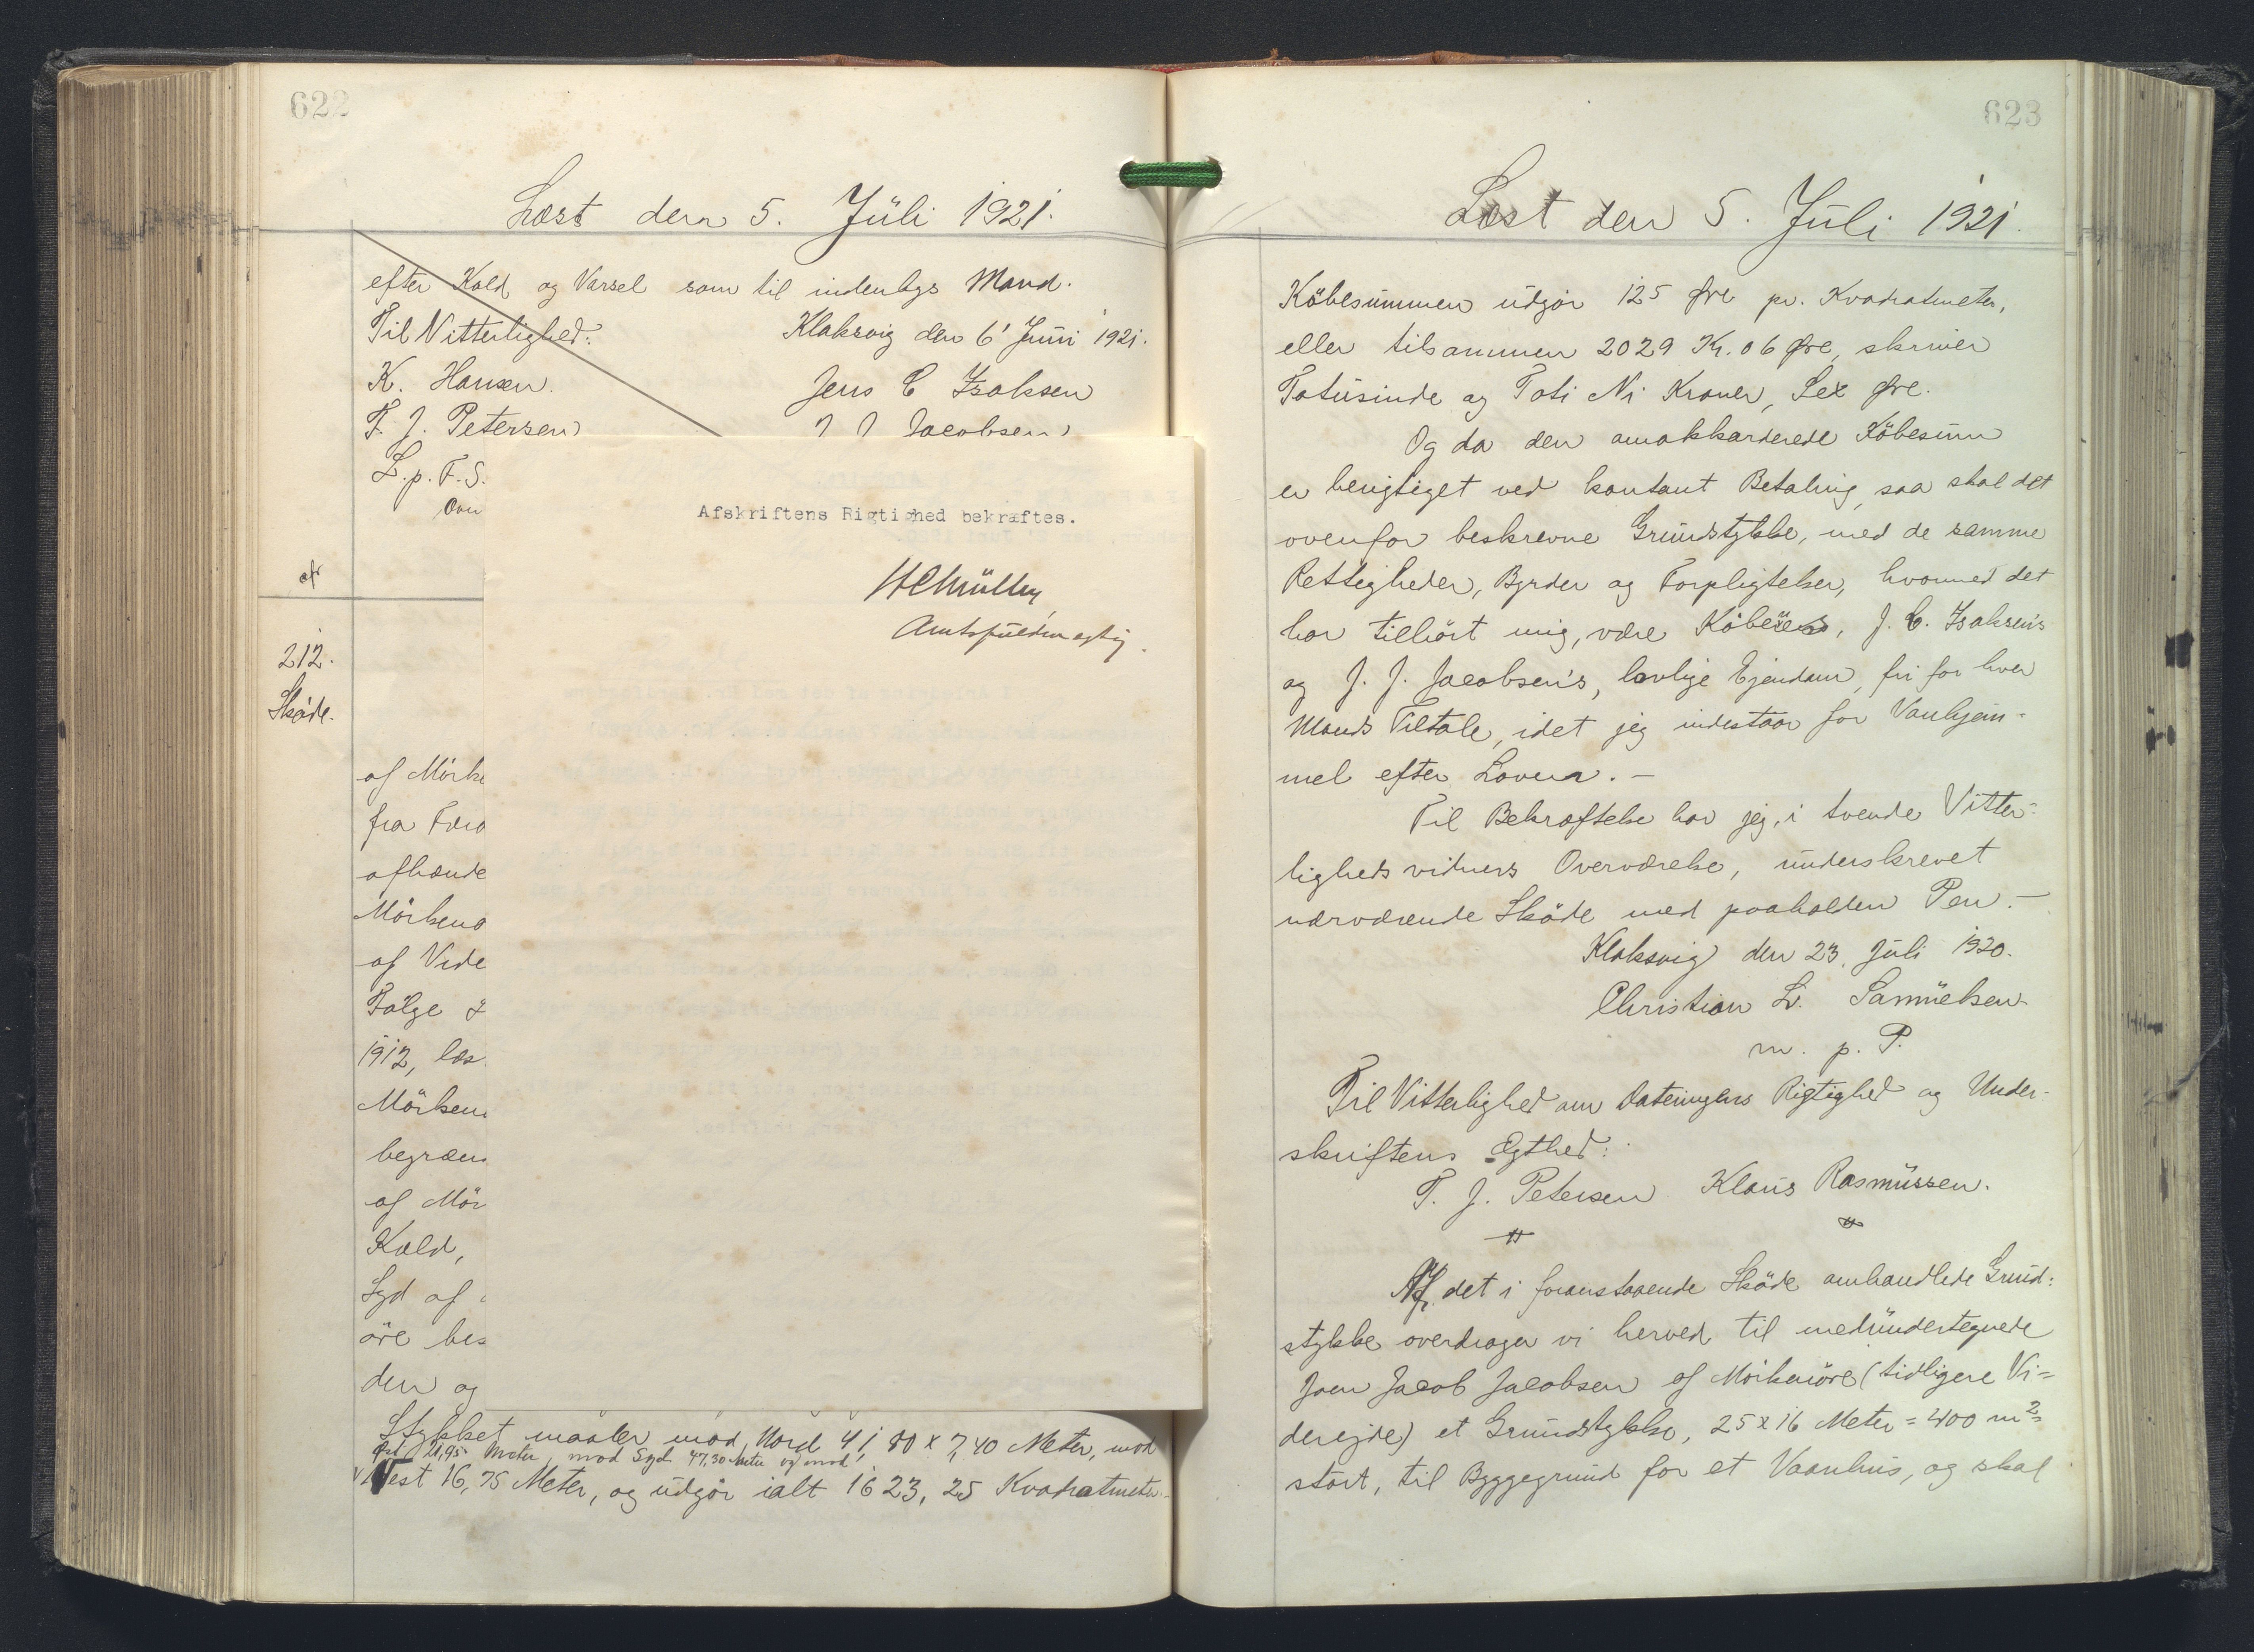 622
Læst den 5. Jüli 1921.
efter Kald og Varsel som til indenbys Mand.
Til Vitterlighed: Klaksvig den 6' Juni 1921.
K. Hansen. Jens C Isaksen
T. J. Petersen J J Jacobsen
L.p.F.S.
Afskriftens Rigtighed bekræftes.
HCMüller,
Amtsfuldmægtig.
af
212.
Sköde.
af Mörke
fra Færø
afhænde
Mörkenö
af Vide
Fölge
1912, læs
Mörken
begræn
af Mör
Kald,
Syd af
öre bes
den og
Stykket maaler mod Nord 41,80 x 7,40 Meter, mod
Öst 21,95 Meter, mod Syd 47,30 Meter og mod
Vest 16,75 Meter, og üdgör ialt 1623,25 Kvadratmeter.
623
Læst den 5. Jüli 1921.
Köbesümmen üdgör 125 Øre pr. Kvadratmeter,
eller tilsammen 2029 Kr. 06 Øre, skriver
Totüsinde og Toti Ni Kroner, Sex Øre.
Og da den amokkarderede Köbesüm
er berigtiget ved kontant Betaling, saa skal det
ovenfor beskrevne Gründstykke, med de samme
Rettigheder, Byrder og Forpligtelser, hvormed det
har tilhört mig, være Köberes, J. C. Isaksens
og J. J. Jacobsen's, lovlige Ejendom, fri for hver
Mands Tiltale, idet jeg indestaar for Vanhjem-
mel efter Loven. —
Til Bekræftelse har jeg, i tvende Vitter-
ligheds vidners Overværelse, ünderskrevet
nærværende Sköde med paaholden Pen. —
Klaksvig den 23. Jüli 1920.
Christian L. Samüelsen
m. p. P.
Til Vitterlighed om Dateringens Rigtighed og Under-
skriftens Ægthed:
T. J. Petersen Klaüs Rasmüssen.
Af det i foranstaaende Sköde omhandlede Gründ-
stykke overdrager vi herved til medündertegnede
Joen Jacob Jacobsen af Mörkenöre (tidligere Vi-
derejde) et Gründstykke, 25 x 16 Meter = 400 m²
stört, til Byggegründ for et Vaanhüs, og skal